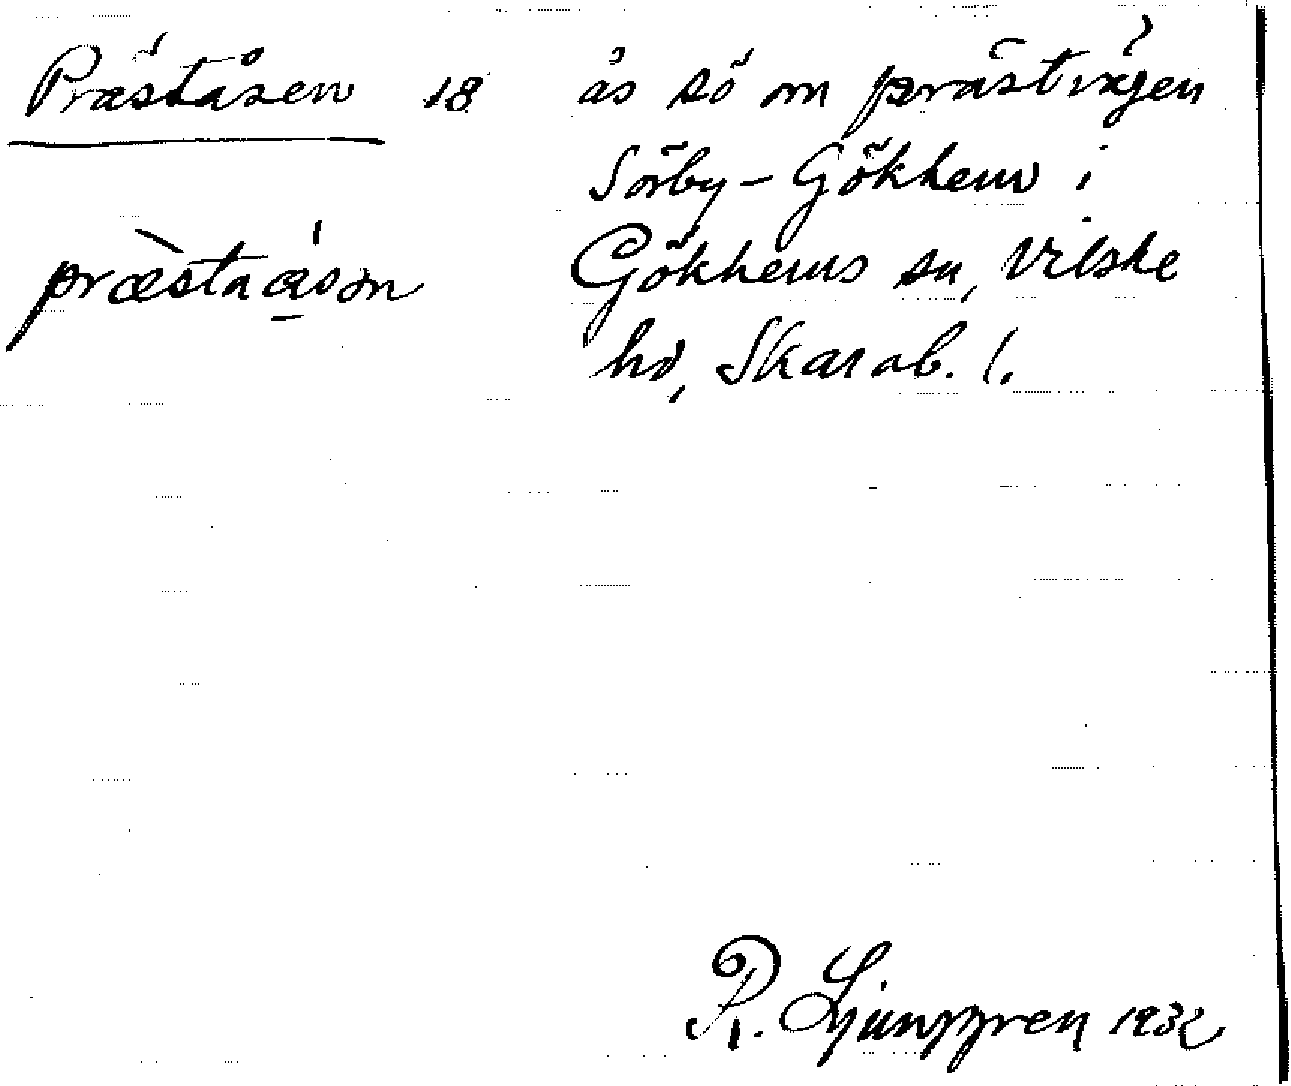 Präståsen 18 ås sö om prästvägen
Sörby - Gökhem i
Gökhems sn, Vilske
hd, Skarab. l.
R. Ljunggren 1932